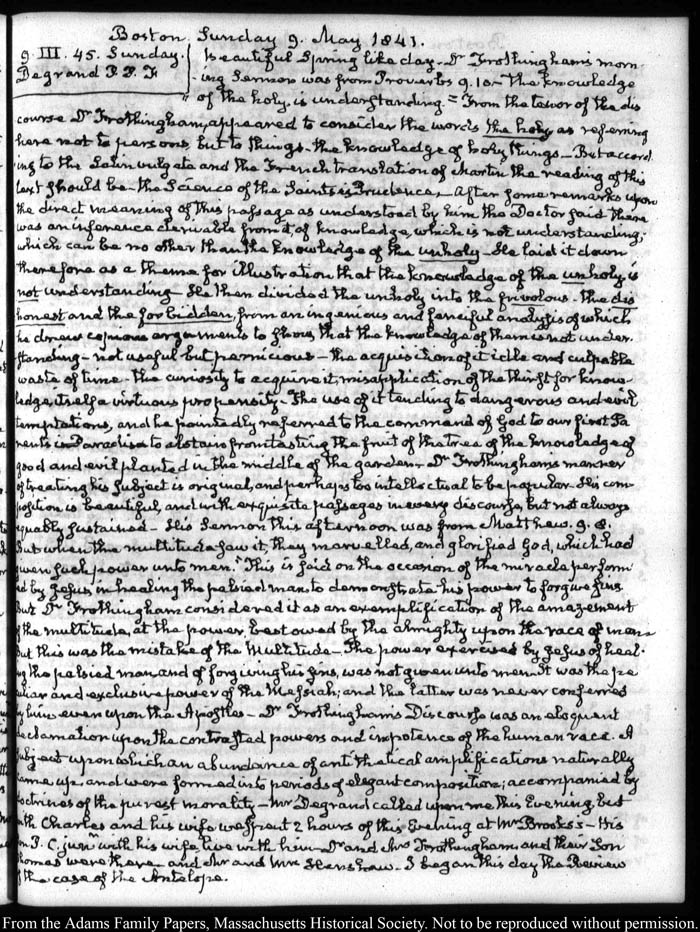 Boston Sunday 9. May 1841.
9. III. 45. Sunday.
Degrand P. P. F
Beautiful Spring like day. Dr Frothingham's morn-
ing Sermon was from Proverbs 9. 10. The knowledge
" of the holy is understanding." From the tenor of the dis
course Dr Frothingham, appeared to consider the words the holy as referring
here not to persons, but to things. the knowledge of holy things — But accord
ing to the Latin vulgate and the French translation of Martin the reading of this
text should be — the Science of the Saints is Prudence — After some remarks upon
the direct meaning of this passage as understood by him the Doctor said there
was an inference derivable from it, of knowledge, which is not understanding;
which can be no other than the knowledge of the unholy — He laid it down
therefore as a theme for illustration that the knowledge of the unholy, is
not understanding — He then divided the unholy into the frivolous. the dis
honest and the forbidden, from an ingenious and fanciful analysis of which
he drew copious arguments to show, that the knowledge of them is not under.
standing — not useful but pernicious — the acquisition of it idle and culpable
waste of time — the curiosity to acquire it, misapplication of the thirst for know-
ledge, itself a virtuous propensity. The use of it tending to dangerous and evil
temptations, and he pointedly referred to the command of God to our first Pa
rents in Paradise to abstain from tasting the fruit of the tree of the knowledge of
good and evil planted in the middle of the garden — Dr Frothingham's manner
of treating his subject is original, and perhaps too intellectual to be popular. His com
position is beautiful, and with exquisite passages in every discourse, but not always
equably sustained — His Sermon this afternoon was from Matthew. 9. 8.
But when the multitude saw it, they marvelled, and glorified God, which had
given such power unto men." This is said on the occasion of the miracle perform
ed by Jesus, in healing the palsied man to demonstrate his power to forgive sins
But Dr Frothingham considered it as an exemplification of the amazement
of the multitude, at the power bestowed by the almighty upon the race of man —
But this was the mistake of the Multitude — The power exercised by Jesus of heal-
ing the palsied man, and of forgiving his sins, was not given unto men. It was the pe
culiar and exclusive power of the Messiah; and the latter was never conferred
by him even upon the Apostles — Dr Frothingham's Discourse was an eloquent
declamation upon the contrasted powers and impotence of the human race. A
subject upon which an abundance of antithetical amplifications naturally
came up, and were formed into periods of elegant composition; accompanied by
doctrines of the purest morality — Mr Degrand called upon me this Evening, but
with Charles and his wife we spent 2 hours of this Evening at Mr Brooks's — His
son P. C. junr with his wife live with him Dr and Mrs Frothingham and their Son
Thomas were there and Mr and Mrs Henshaw — I began this day the Review
of the case of the Antelope.
From the Adams Family Papers, Massachusetts Historical Society. Not to be reproduced without permission.